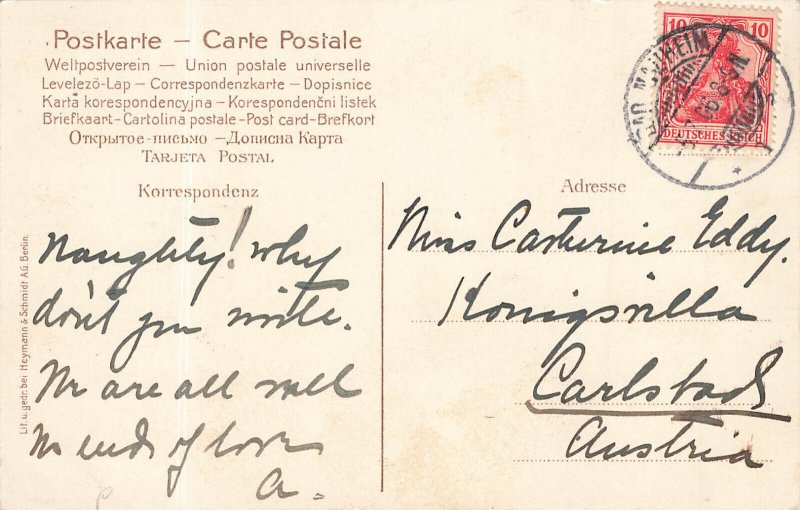 Postkarte – Carte Postale
Weltpostverein – Union postale universelle
Levelező-Lap – Correspondenzkarte – Dopisnice
Karta korespondencyjna – Korespondenční listek
Briefkaart – Cartolina postale – Post card – Brefkort
Открытое-письмо – Дописна Карта
TARJETA POSTAL
Korrespondenz
Naughty! why
don't you write.
We are all well
No ends of love
A.
Lit. u. gedr. bei Heymann & Schmidt A.G. Berlin.
Adresse
Miss Catherine Eddy.
Königsvilla
Carlsbad
Austria
10 10
DEUTSCHES REICH
BAD NAUHEIM